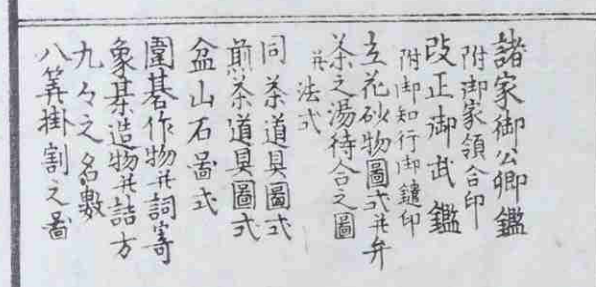 諸家御公卿鑑
附御家領合印
改正御武鑑
附御知行御鑓印
立花砂物圖式并弁
茶之湯待合之圖
并法式
同茶道具圖式
煎茶道具圖式
盆山石啚式
圍碁作物并詞寄
象棊造物并詰方
九々之名數
八算掛割之啚